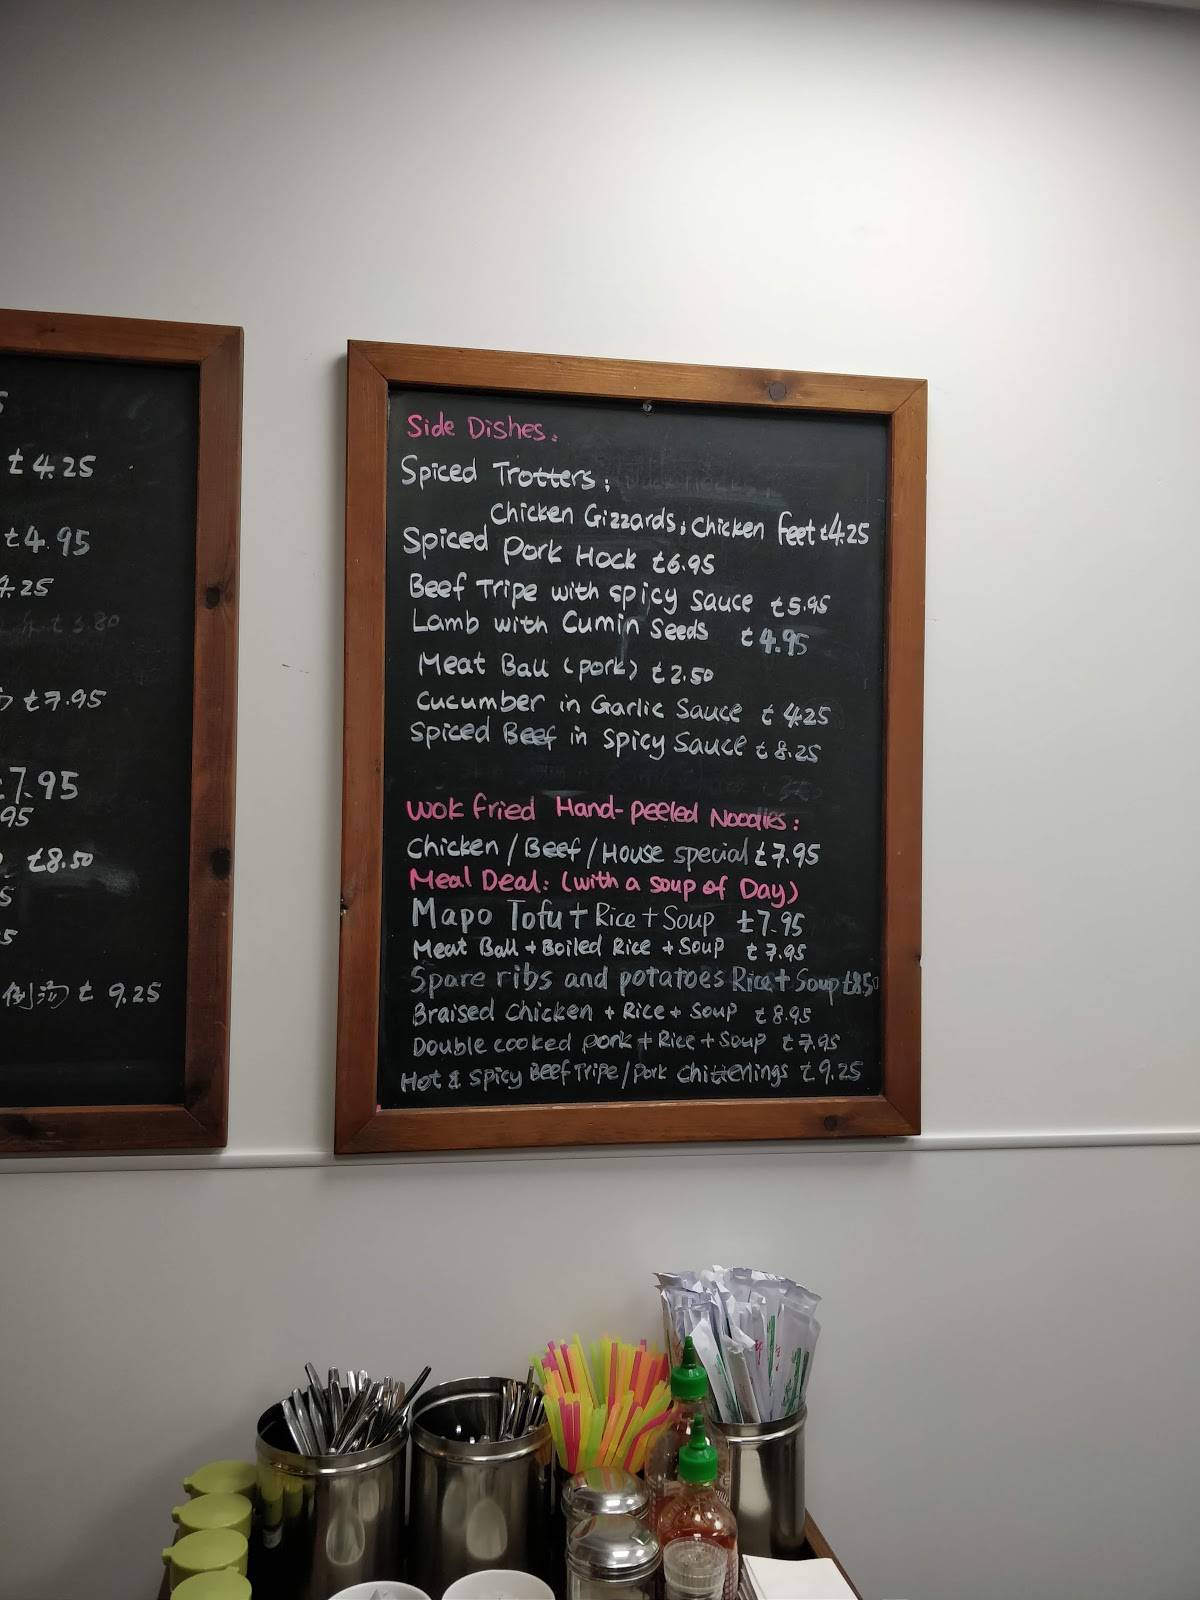 £4.25
£4.95
4.25
£3.80
£7.95
£7.95
95
£8.50
5
5
£ 9.25
Side Dishes:
Spiced Trotters;
Chicken Gizzards; Chicken feet £4.25
Spiced Pork Hock £6.95
Beef Tripe with spicy sauce £5.95
Lamb with Cumin Seeds £4.95
Meat Ball (pork) £2.50
Cucumber in Garlic Sauce £4.25
Spiced Beef in Spicy Sauce £8.25
Wok fried Hand-peeled Noodles:
Chicken / Beef / House special £7.95
Meal Deal: (with a soup of Day)
Mapo Tofu + Rice + Soup £7.95
Meat Ball + Boiled Rice + Soup £7.95
Spare ribs and potatoes Rice + Soup £8.50
Braised Chicken + Rice + Soup £8.95
Double cooked pork + Rice + Soup £7.95
Hot & Spicy Beef Tripe / Pork Chitterlings £9.25